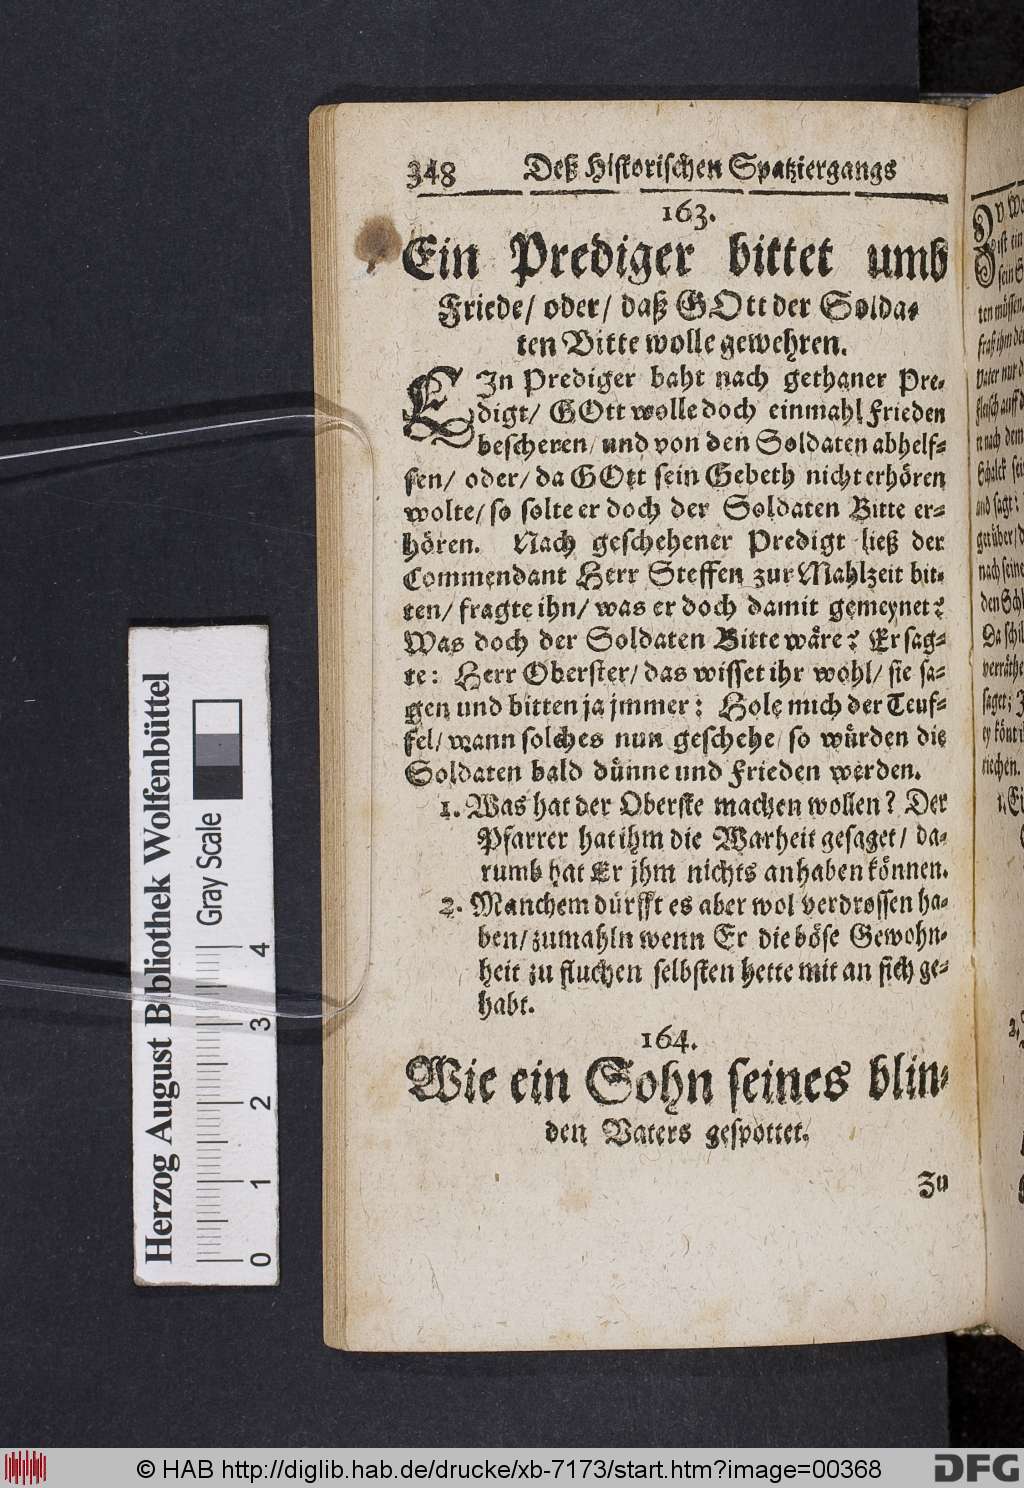 348 Deß Historischen Spatziergangs
163.
Ein Prediger bittet umb
Friede/ oder/ daß GOtt der Solda-
ten Bitte wolle gewehren.
EIn Prediger baht nach gethaner Pre-
digt/ GOtt wolle doch einmahl Frieden
bescheren/ und von den Soldaten abhelf-
fen/ oder/ da GOtt sein Gebeth nicht erhören
wolte/ so solte er doch der Soldaten Bitte er-
hören. Nach geschehener Predigt ließ der
Commendant Herr Steffen zur Mahlzeit bit-
ten/ fragte ihn/ was er doch damit gemeynet?
Was doch der Soldaten Bitte wäre? Er sag-
te: Herr Oberster/ das wisset ihr wohl/ sie sa-
gen und bitten ja jmmer: Hole mich der Teuf-
fel/ wann solches nun geschehe/ so würden die
Soldaten bald dünne und Frieden werden.
1. Was hat der Oberste machen wollen? Der
Pfarrer hat ihm die Warheit gesaget/ da-
rumb hat Er jhm nichts anhaben können.
2. Manchem dürfft es aber wol verdrossen ha-
ben/ zumahln wenn Er die böse Gewohn-
heit zu fluchen selbsten hette mit an sich ge-
habt.
164.
Wie ein Sohn seines blin-
den Vaters gespottet.
Zu
Herzog August Bibliothek Wolfenbüttel
Gray Scale
0 1 2 3 4
© HAB http://diglib.hab.de/drucke/xb-7173/start.htm?image=00368
DFG